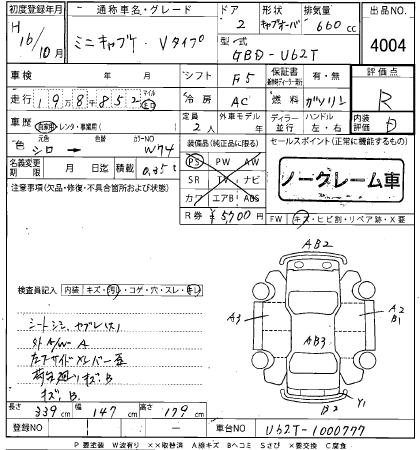 初度登録年月 通称車名・グレード ドア 形状 排気量 出品NO.
H 16/10月 ミニキャブ. Vタイプ 2 キャブオーバ 660 cc 4004
型式 GBD-U62T
車検 年 月 シフト F5 保証書 有・無 評価点
走行 1 9万 8千 8 5 2 マイル キロ 冷房 AC 燃料 ガソリン R
車歴 自家用・レンタ・事業用( ) 定員 2人 外車モデル 年 ディーラー 並行 ハンドル 左・右 内装評価 D
色 元色 シロ → 色替 カラーNO W74 装備品(純正品に限る) セールスポイント(正常に機能するもの)
名義変更期限 月 日迄 積載 0.35t PS PW AW
SR TV ナビ ノークレーム車
カワ エアB ABS
注意事項(欠品・欠陥・不具合箇所および状態)
R券 ¥5,700 FW キズ・ヒビ割・リペア跡・X要
検査員記入 内装 キズ・汚レ・コゲ・穴・スレ・
AB2
A3 AB3 A2 B1
B2 Y1
キズ、B
キズ、B.
長さ 339cm 幅 147cm 高さ 179cm
登録NO 車台NO U62T-1000777
P要塗装 W波有り ××取替済 A線キズ Bヘコミ Sさび ×要交換 C腐食